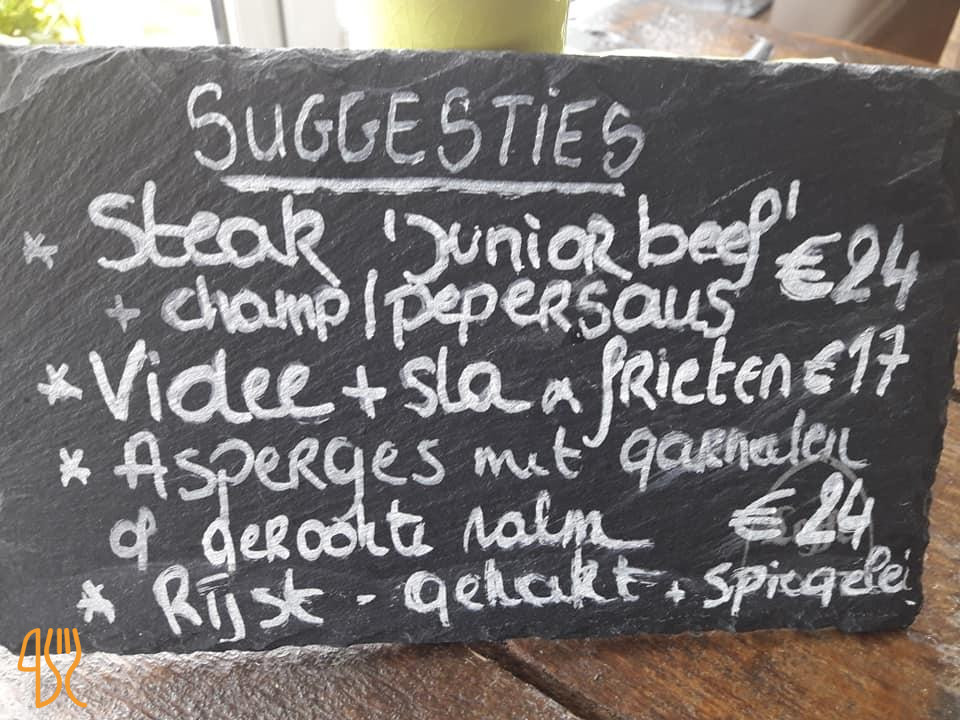 SUGGESTIES
* Steak 'Junior beef' €24
+ champ/pepersaus
* Videe + sla & frieten €17
* Asperges met garnalen
of gerookte zalm €24
* Rijst - gehakt + spiegelei